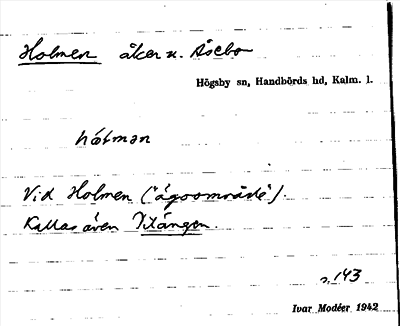 Holmen åker u. Åsebo
Högsby sn, Handbörds hd, Kalm. l.
hólmən
Vid Holmen ("ägoområde").
Kallas även
s. 143
Ivar Modéer 1942